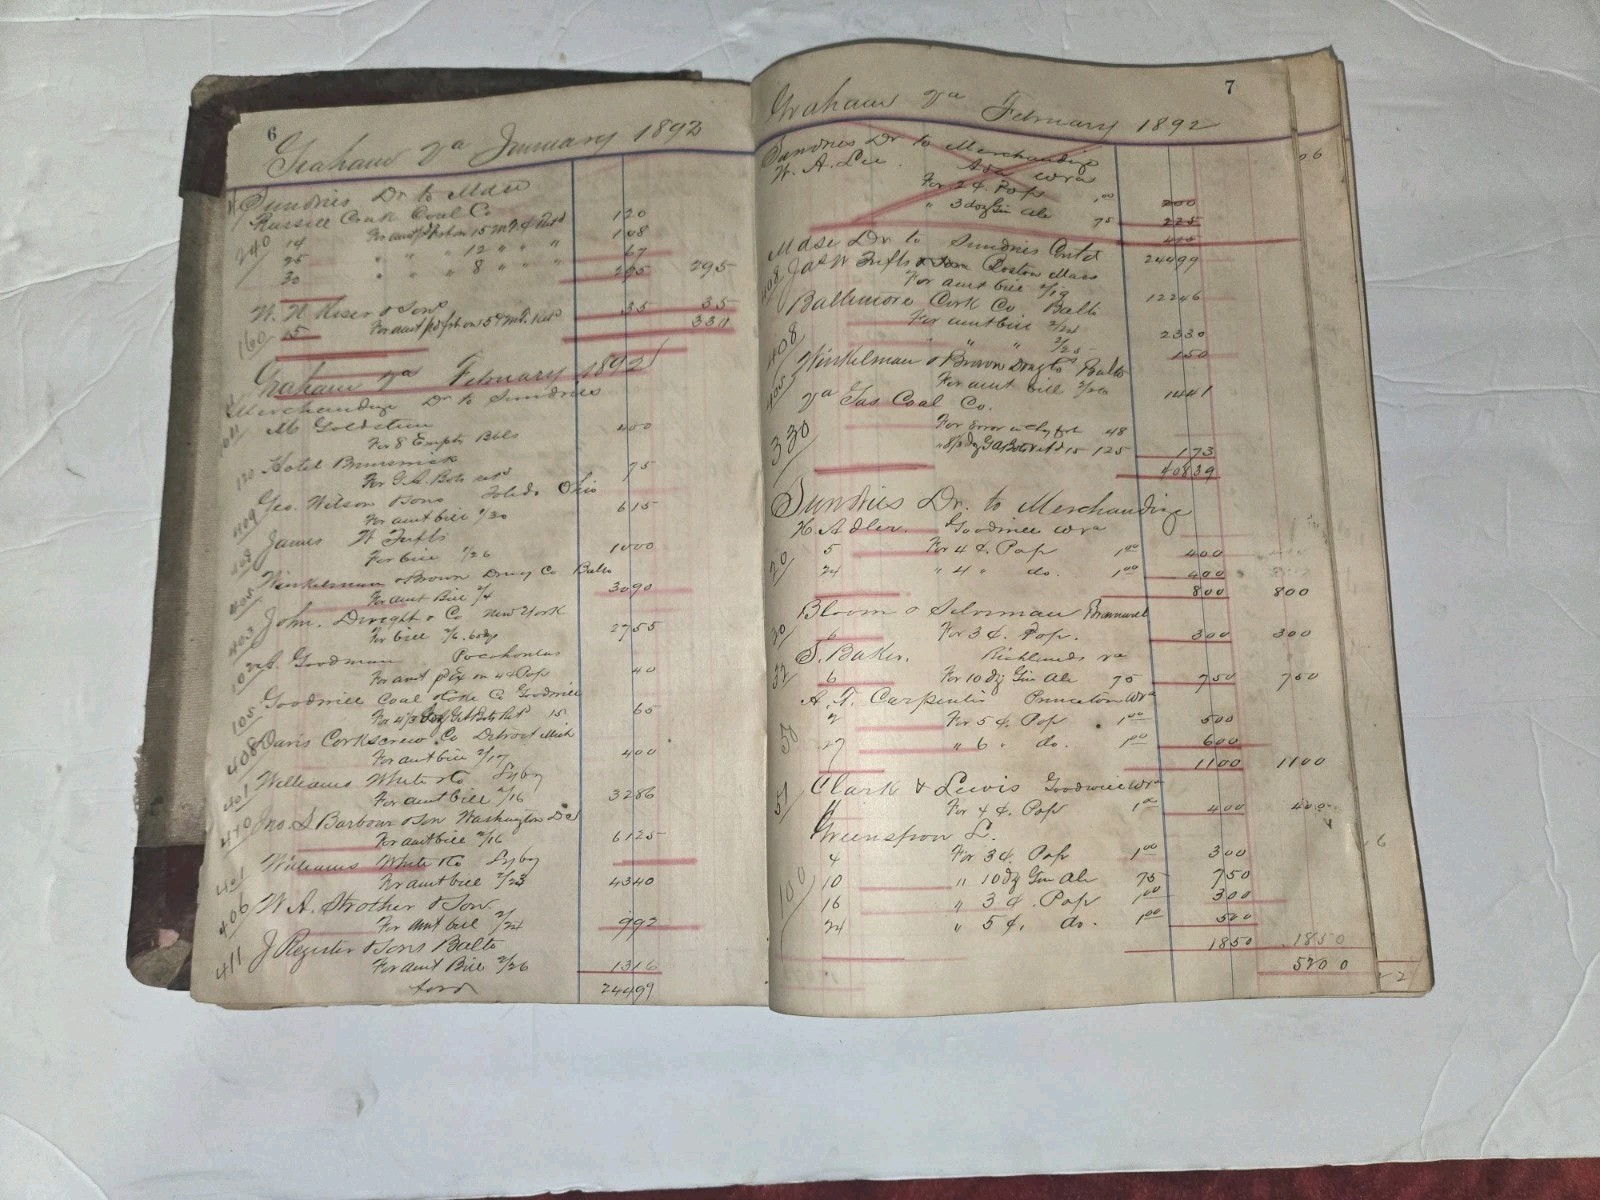 6
Graham Va January 1892
Sundries Dr to Mdse
Russell Creek Coal Co
240
14 For amt pd frt on 15 Ret'd 120
25 " " " 12 " " " 108
30 " " " 8 " " " 67
295 295
W. H. Kiser & Son
160 15 For amt pd frt on Ret'd 35 35
330
Graham Va February 1892
Merchandize Dr to Sundries
M. Goldstein
For 8 Empty Bbls 400
120 Hotel Brunswick
For G.A. Bots ret'd 75
409 Geo. Wilson & Sons Toledo Ohio
For amt bill 1/30 615
408 James W Tufts
For bill 1/26 1000
405 Winkelman & Brown Drug Co Balto
For amt Bill 2/4 3090
403 John. Dwight & Co New York
For bill 2/6. 60dys 2755
102 A. Goodman Pocahontas
For amt on 4¢ Pop 40
105 Goodwill Coal & Coke Co Goodwill
For 4 1/3 doz G.A Bots Ret'd 15 65
408 Davis Corkscrew Co Detroit Mich
For amt bill 2/17 400
401 Williams White & Co Lybg
For amt bill 2/16 3286
410 Jno. S Barbour & Son Washington DC
For amt bill 2/16 6125
401 Williams White & Co Lybg
For amt bill 2/23 4340
406 W A. Strother & Son.
For amt bill 2/24 992
411 J Register & Sons Balto
For amt Bill 2/26 1316
ford 24499
7
Graham Va February 1892
Sundries Dr to Merchandize
W. A. Lee. Ada Wva
For 2¢. Pop 1 00 200
" 3 doz Gin Ale 75 225
425
Mdse Dr to Sundries Cont'd 24499
408 Jas W Tufts & Son Boston Mass
For amt bill 2/19 12246
Baltimore Cork Co. Balto
408 For amt bill 2/24 2330
" " 2/25 150
405 Winkelman & Brown Drug Co Balto
For amt bill 2/26 1441
Va Gas Coal Co.
330 For error in frt 48
" 8 1/3 dz GA Bots Ret'd 15 125 173
40839
Sundries Dr. to Merchandize
H. Adler. Goodwill Wva
20 5 For 4 ¢. Pop 1 00 400
24 " 4 " do. 1 00 400
800 800
Bloom & Silverman Bramwell
30 6 For 3¢. Pop. 300 300
S. Baker. Richlands Va
32 6 For 10 dz Gin Ale 75 750 750
A. F. Carpenter Princeton Wva
2 For 5 ¢. Pop 1 00 500
27 " 6 " do. 1 00 600
1100 1100
Clark & Lewis Goodwill Wva
51 11 For 4 ¢. Pop 1 00 400 400
Greenspon L.
4 For 3 ¢. Pop 1 00 300
100 10 " 10 dz Gin Ale 75 750
16 " 3 ¢. Pop 1 00 300
24 " 5 ¢. do. 1 00 500
1850 1850
5200